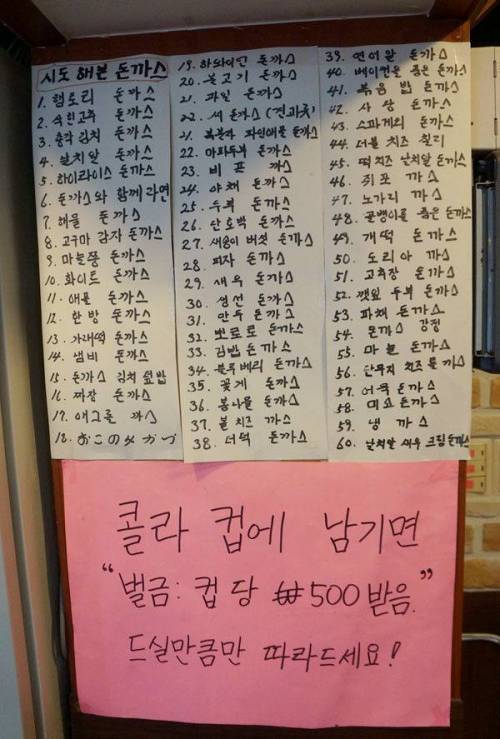 시도 해본 돈까스
1. 헝로리 돈까스
2. 숙한고추 돈까스
3. 총각김치 돈까스
4. 날치알 돈까스
5. 하이라이스 돈까스
6. 돈까스와 함께 라면
7. 해물 돈까스
8. 고구마 감자 돈까스
9. 마늘쫑 돈까스
10. 화이트 돈까스
11. 애플 돈까스
12. 한방 돈까스
13. 가래떡 돈까스
14. 냄비 돈까스
15. 돈까스 김치 덮밥
16. 짜장 돈까스
17. 애그롤 까스
18.
19. 하와이안 돈까스
20. 불고기 돈까스
21. 과일 돈까스
22. 씨 돈까스 (견과류)
21. 복분자 파인애플 돈까스
22. 마파두부 돈까스
23. 비프 까스
24. 야채 돈까스
25. 두부 돈까스
26. 단호박 돈까스
27. 새송이 버섯 돈까스
28. 피자 돈까스
29. 새우 돈까스
30. 생선 돈까스
31. 만두 돈까스
32. 뽀로로 돈까스
33. 김밥 돈까스
34. 블루베리 돈까스
35. 꽃게 돈까스
36. 콩나물 돈까스
37. 볼치즈 까스
38. 더덕 돈까스
39. 연어알 돈까스
40. 베이컨을 품은 돈까스
41. 볶음밥 돈까스
42. 사상 돈까스
43. 스파게리 돈까스
44. 더블 치즈 칠리
45. 떡 치즈 날치알 돈까스
46. 쥐포 까스
47. 노가리 까스
48. 골뱅이를 품은 돈까스
49. 개떡 돈까스
50. 도리아 까스
51. 고추장 돈까스
52. 깻잎 두부 돈까스
53. 파채 돈까스
54. 돈까스 강정
55. 마늘 돈까스
56. 단무지 치즈 롤까스
57. 어묵 돈까스
58. 미요 돈까스
59. 냉 까스
60. 날치알 새우 크림 돈까스
콜라 컵에 남기면
"벌금: 컵당 ₩500 받음."
드실만큼만 따라드세요!